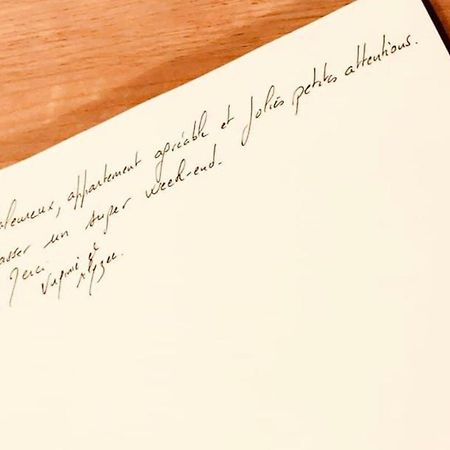 aleureux, appartement agréable et jolies petites attentions.
asser un super week-end.
Merci
Virginie et